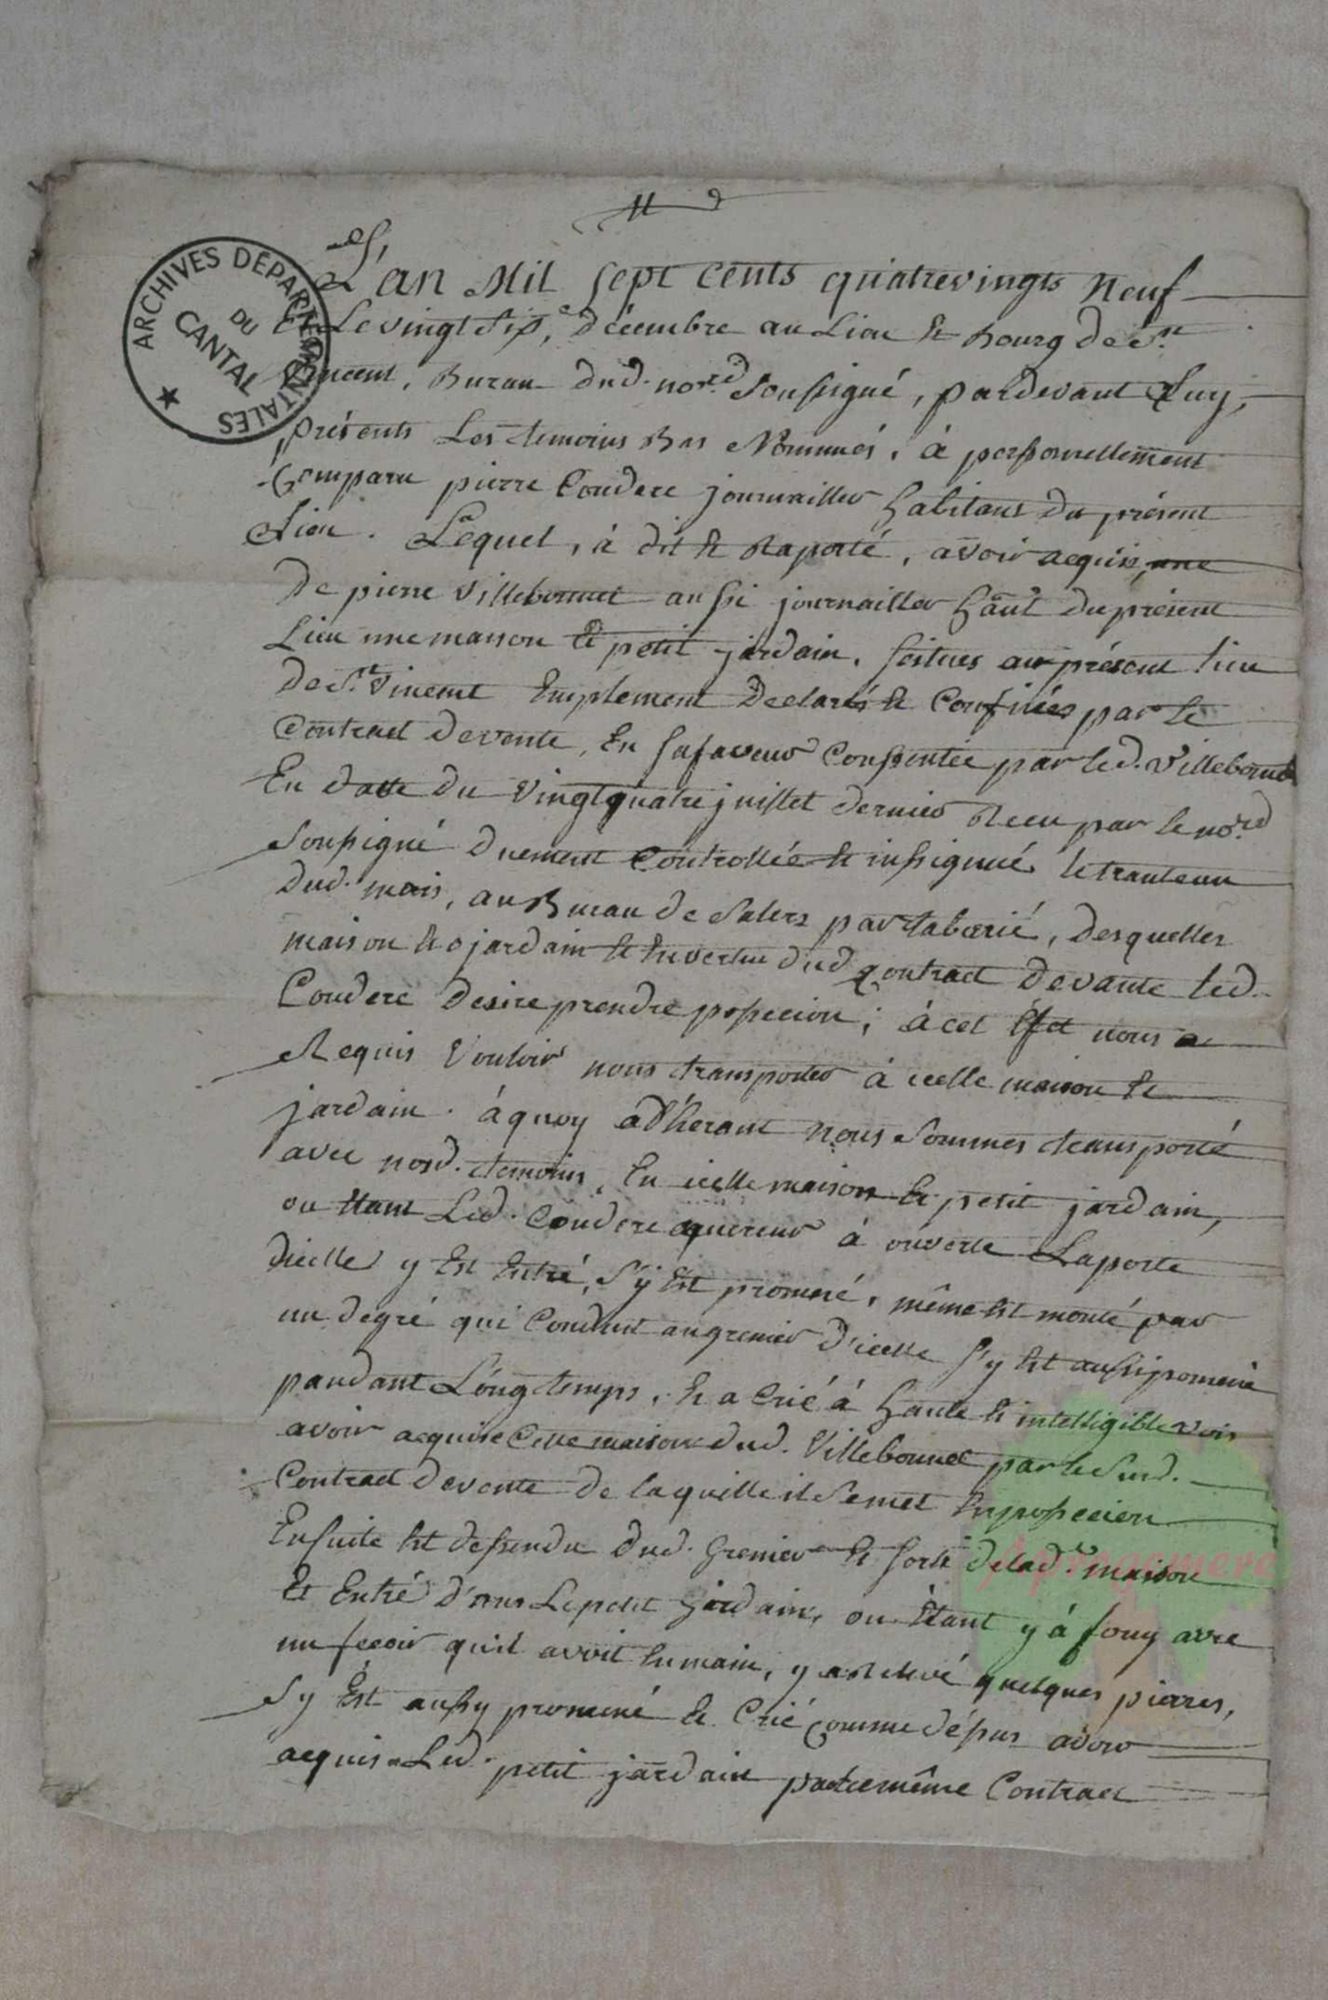 ARCHIVES DÉPARTEMENTALES
DU
CANTAL
L'an Mil sept cents quatrevingts Neuf
Et Le vingt Six, e décembre au Lieu & Bourg de St.
Vincent, Bureau dud. nore. Soussigné, pardevant Luy,
présents Les temoins Bas Nommés, à personnellement
Comparu pierre Couderc journailler habitant du présent
Lieu. Lequel, à dit & Raporté, avoir acquis,
De pierre Villebonnet aussi journailler hant du présent
Lieu une maison & petit jardain, scitues au présent lieu
de St. Vincent Emplement Declarés & Confinés par le
Contract de vente, En sa faveur Consentie par led. Villebonnet
En datte du vingt quatre juillet dernier Receu par le nore.
Soussigné duement Controllée & insignué le trante un
dud. mois, au Bureau de Salers par tabarié, desquelles
maison & jardain & En vertu dud. Contract de vante led.
Couderc desire prendre possecion; à cet Efet nous a
Requis Vouloir nous transporter à icelle maison &
jardain. à quoy adhérant nous Sommes transporté
avec nosd. temoins, En icelle maison & petit jardain,
ou Etant Led. Couderc aquereur à ouverte La porte
dicelle y Est Entré, S'y Est promené, même Est monté par
un degré qui Conduit au grenier d'icelle s'y Est aussi promené
pandant Long temps, & a Crié à haute & intelligible voix
avoir acquise Cette maison dud. Villebonnet par le Susd.
Contract de vente de la quelle il Se met En possecion
Ensuite Est dessendu dud. Grenier & sorti de lad. maison
Et Entré d'ans Le petit jardain, ou Etant y à fouy avec
un fessoir qu'il avoit En main, y a Relevé quelques pierres,
S'y Est aussy promené & Crié Comme dessus avoir
acquis Led. petit jardain par le même Contract